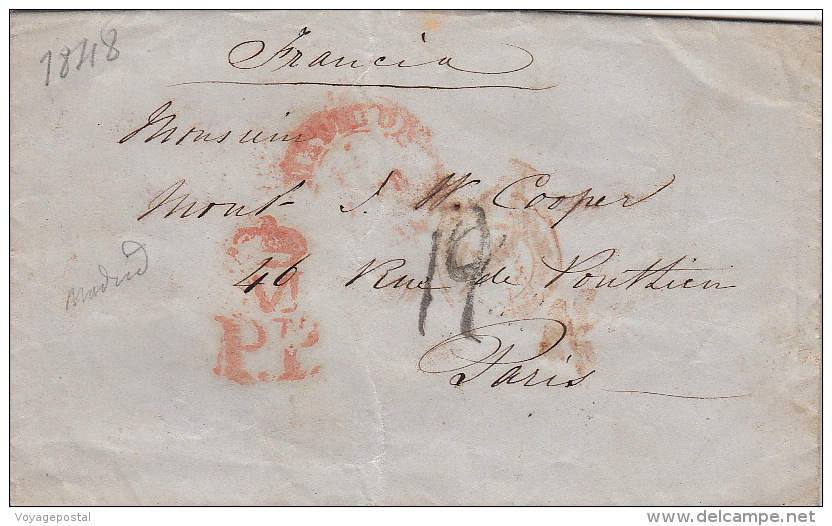 1848
Francia
Monsieur
Mont J. W. Cooper
19
46 Rue de Ponthieu
Madrid
P.P.
Paris
Voyagepostal
www.delcampe.net